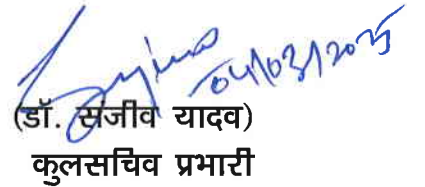 04/03/2025
(डॉ. संजीव यादव)
कुलसचिव प्रभारी